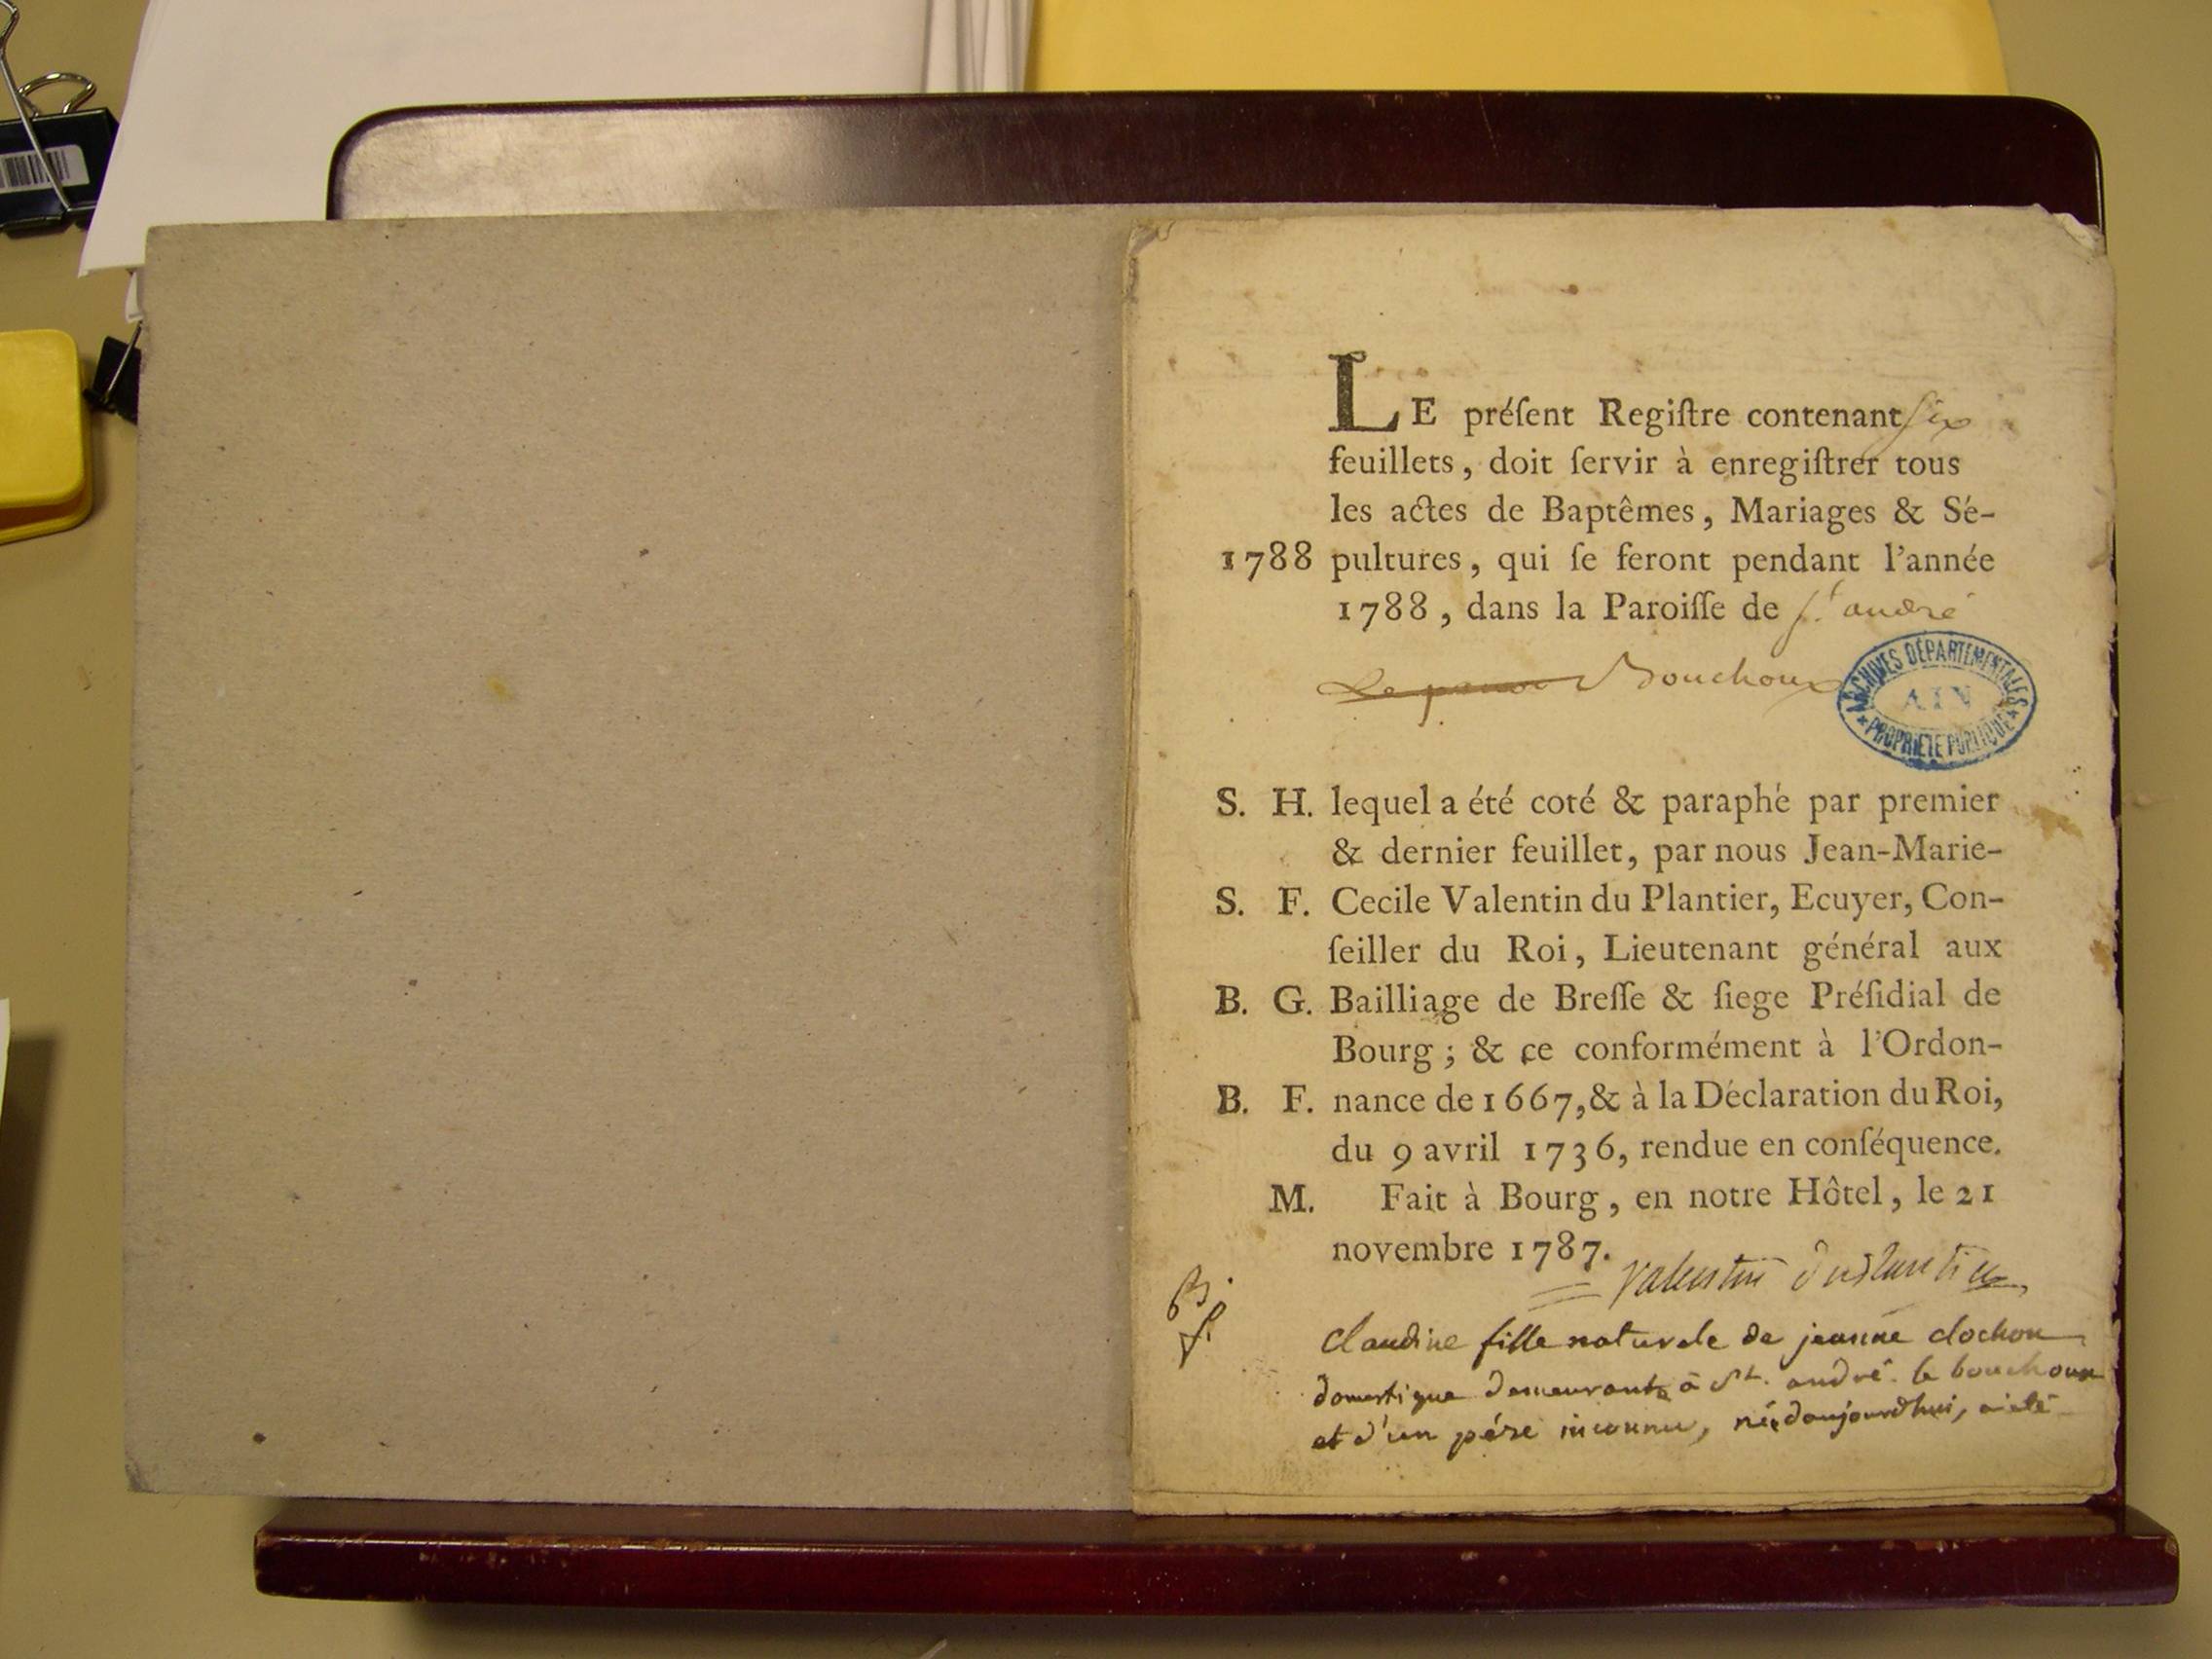 LE préſent Regiſtre contenant ſix
feuillets, doit ſervir à enregiſtrer tous
les actes de Baptêmes, Mariages & Sé-
1788 pultures, qui ſe feront pendant l'année
1788, dans la Paroiſſe de St. andré
Bouchoux
ARCHIVES DÉPARTEMENTALES
AIN
PROPRIÉTÉ PUBLIQUE
S. H. lequel a été coté & paraphé par premier
& dernier feuillet, par nous Jean-Marie-
S. F. Cecile Valentin du Plantier, Ecuyer, Con-
ſeiller du Roi, Lieutenant général aux
B. G. Bailliage de Breſſe & ſiege Préſidial de
Bourg; & ce conformément à l'Ordon-
B. F. nance de 1667, & à la Déclaration du Roi,
du 9 avril 1736, rendue en conſéquence.
M. Fait à Bourg, en notre Hôtel, le 21
novembre 1787.
Valentin duplantier
B.
f.
Claudine fille naturele de jeanne clochon
domestique demeurante à St. andré le bouchoux
et d'un pére inconnu, née aujourdhui, a eté